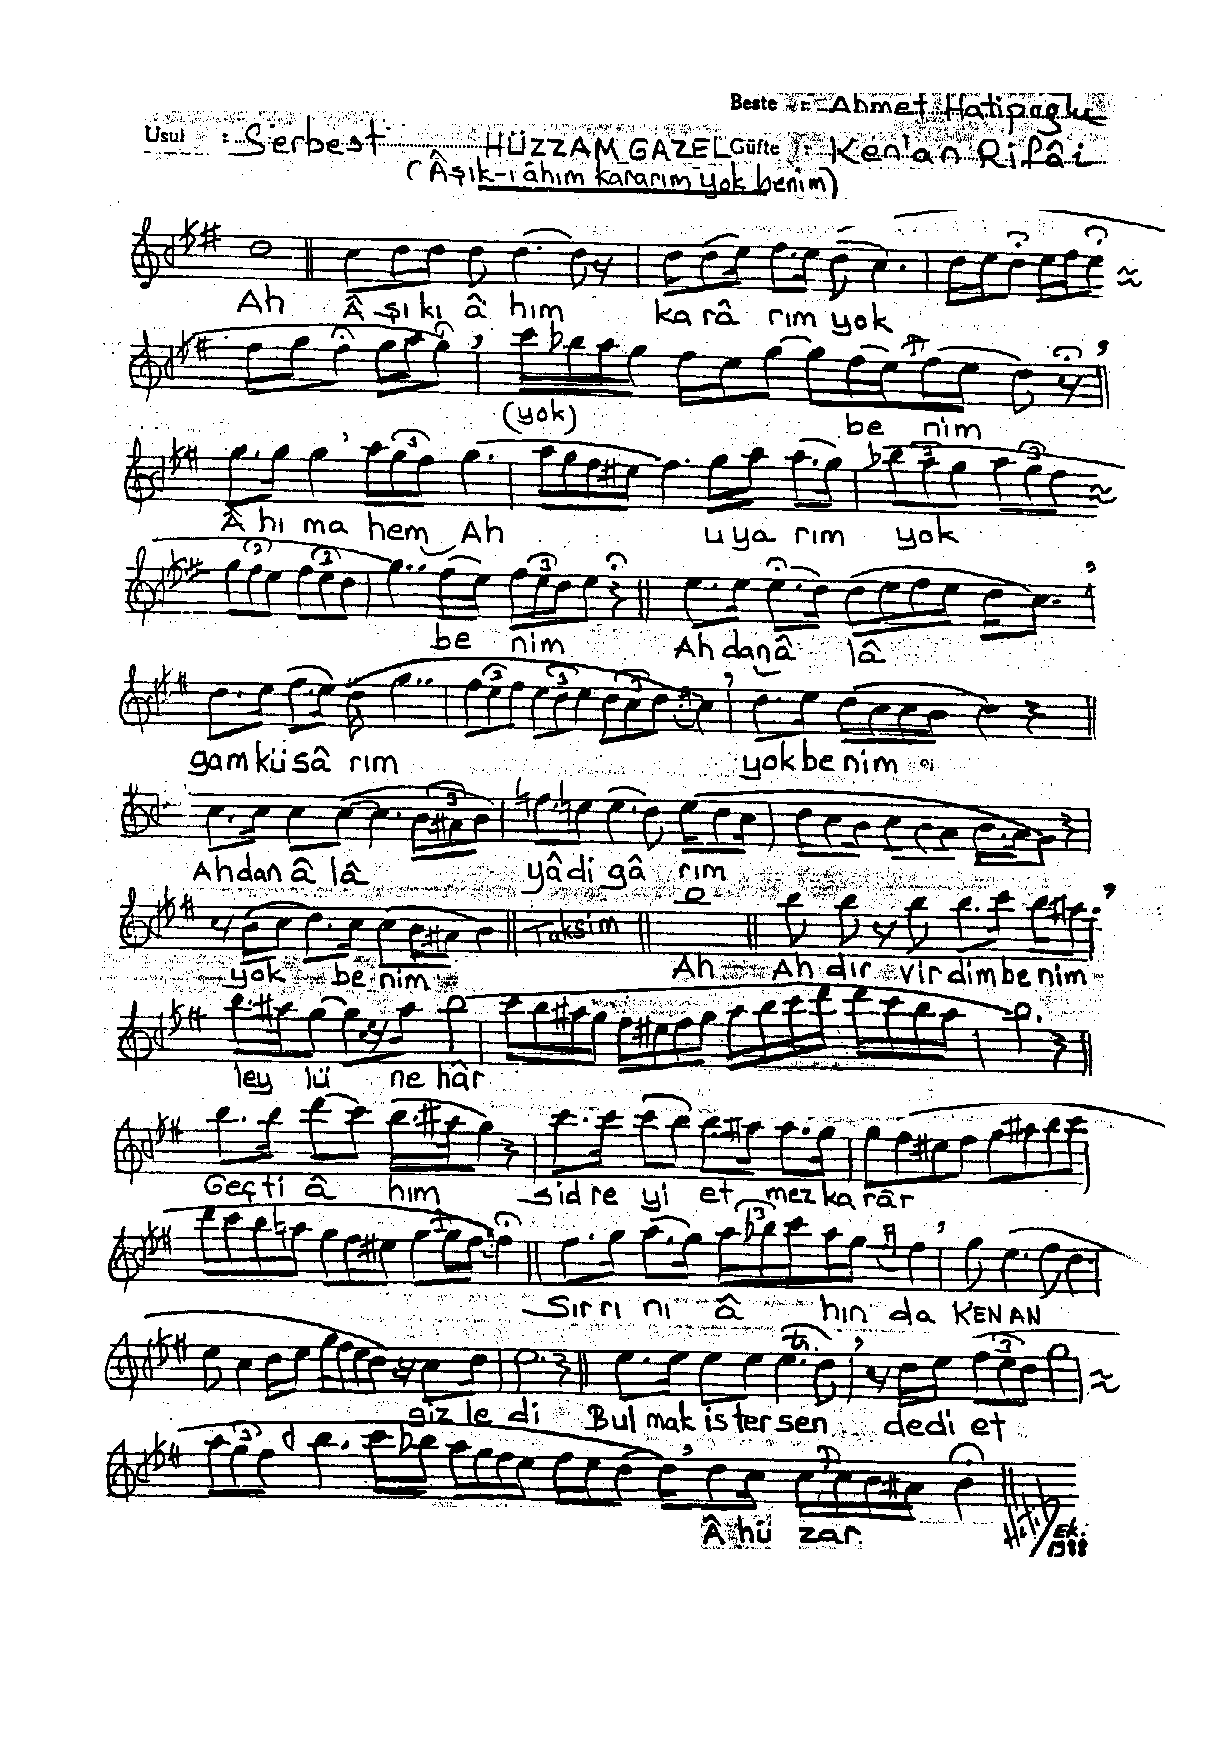 Beste : Ahmet Hatipoğlu
Usul : Serbest HÜZZAM GAZEL Güfte : Ken'an Rifâi
(Âşık-ı âhım kararım yok benim)
Ah Â şı kı â hım ka râ rım yok
(yok) be nim
Â hı ma hem Ah u ya rım yok
be nim Ah dan â lâ
gam kü sâ rım yok be nim
Ah dan â lâ yâ di gâ rım
yok be nim Taksim Ah Ah dır vir dim be nim
ley lü ne hâr
Geç ti â hım sid re yi et mez ka râr
Sır rı nı â hın da KENAN
giz le di Bul mak is ter sen de di et
Â hü zar
Ek.
1988